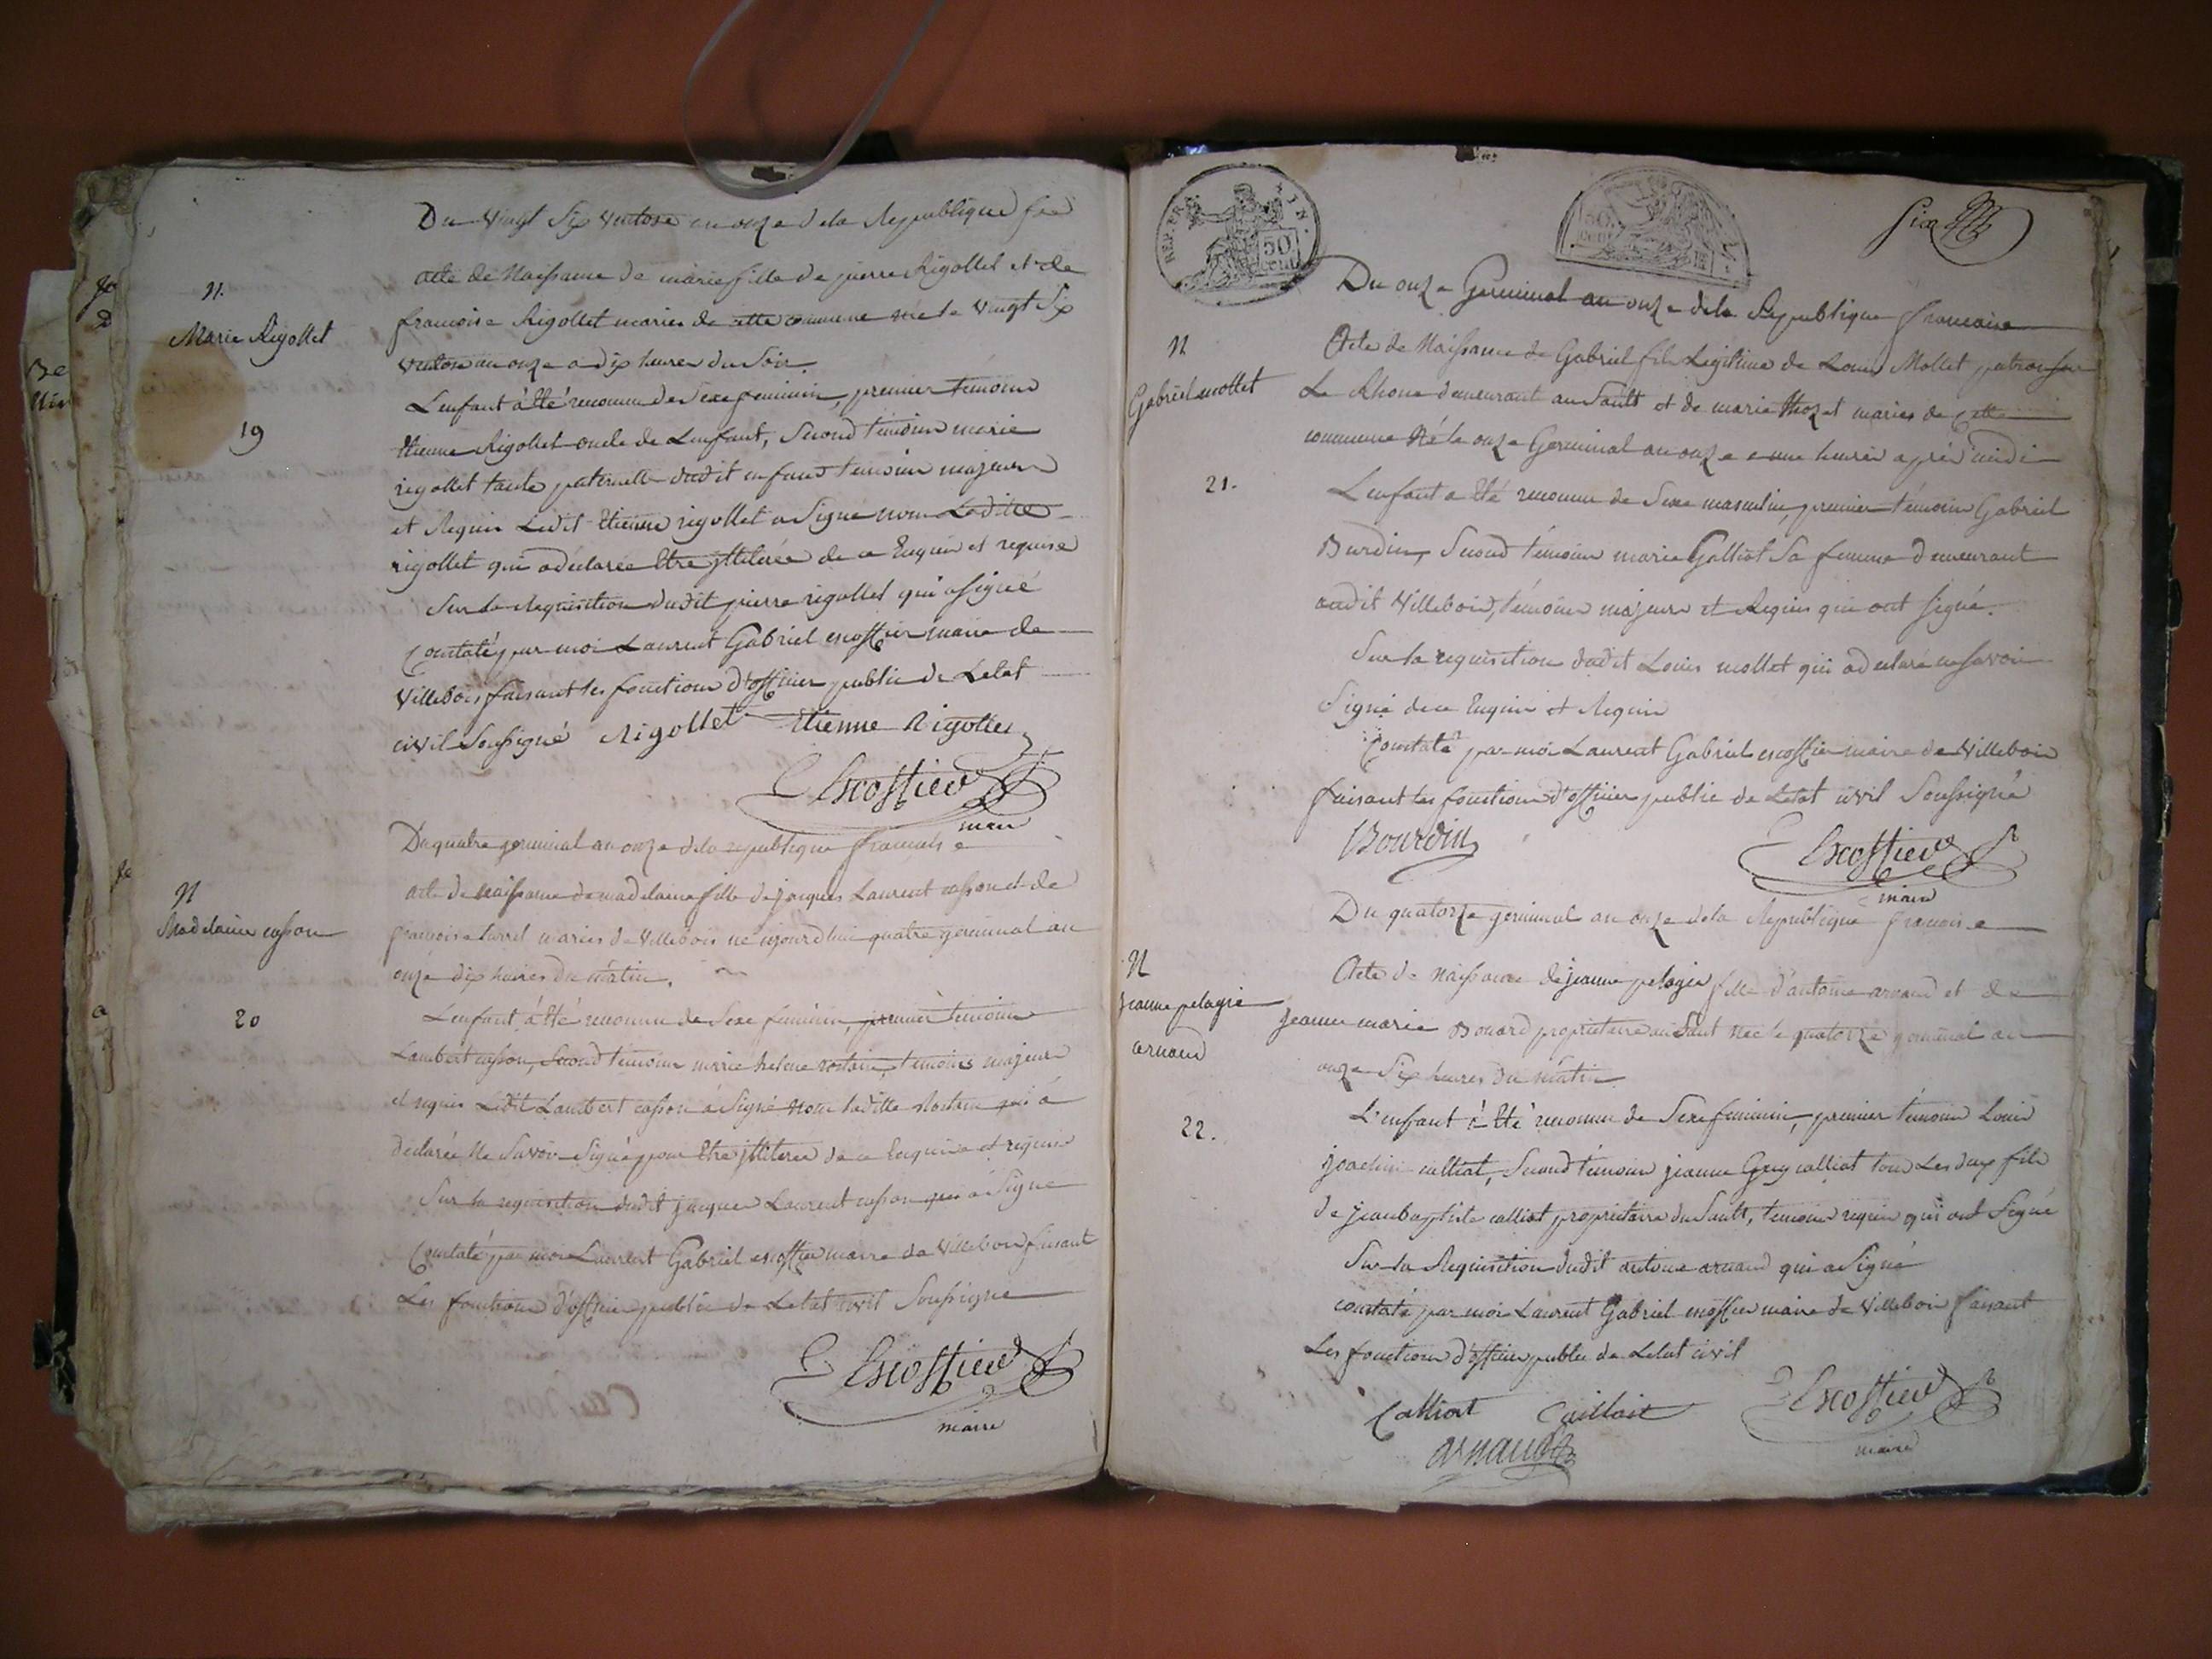 Du vingt Six ventose an onze de la Republique fse
N.
Marie Rigollet
19
acte de Naissance de marie fille de pierre Rigollet et de
francoise Rigollet mariés de cette commune née le vingt Six
ventose an onze a dix heures du Soir.
L'enfant à été reconnu de Sexe feminin, premier témoin
Etienne Rigollet oncle de Lenfant, Second témoin marie
rigollet tante paternelle dudit enfant temoins majeurs
et Requis Ledit Etienne rigollet a Signé non Ladite
rigollet qui a déclarée Etre jlliterée de ce Enquise et requise
Sur la Requisition dudit pierre rigollet qui a signé
Constaté par moi Laurent Gabriel escoffier maire de
Villebois faisant les fonctions d'officier public de Letat
civil Soussigné Rigollet Etienne Rigollet
Escoffier
maire
Du quatre germinal an onze dela republique francaise
N
Madelaine casson
20
acte de naissance de madelaine fille de jacques Laurent casson et de
francoise mariés de Villebois né aujourdhui quatre germinal an
onze dix heures du matin.
Lenfant, à été reconnu de Sexe feminin, premier temoin
Lambert casson, Second temoin marie helene rostain, temoins majeurs
et requis Ledit Lambert casson a Signé non ladite Rostain qui à
declarée ne Savoir Signé pour Etre jlliteree de ce Enquise et requise
Sur la requisition dudit jacques Laurent casson qui a Signe
Constaté par moi Laurent Gabriel escoffier maire de Villebois faisant
Les fonctions d'officier public de Letat civil Soussigne
Escoffier
maire
REP. FRA
50
cent
50
cent
Six
Du onze Germinal an onze dela Republique francaise
N
Gabriel mollet
21.
Acte de Naissance de Gabriel fils Legitime de Louis Mollet patron sur
Le Rhone demeurant au Sault et de marie thozet mariés de Cette
commune Né le onze Germinal an onze a une heure après midi
L'enfant a été reconnu de Sexe masculin, premier témoin Gabriel
Burdin, Second témoin marie Galliot Sa femme demeurant
audit Villebois, témoins majeurs et Requis qui ont signé.
Sur la requisition dudit Louis mollet qui a declaré ne savoir
Signé de ce Enquis et Requis
Constaté par moi Laurent Gabriel escoffier maire de Villebois
faisant les fonctions d'officier public de Letat civil Soussigné
Bourdin
Escoffier
maire
Du quatorze germinal an onze dela Republique francoise
N
jeanne pelagie
arnaud
22.
Acte de naissance de jeanne pelagie fille d'antoine arnaud et de
jeanne marie Bouard propriétaire au Saut née le quatorze germinal an
onze Six heures du matin
L'enfant à été reconnu de Sexe feminin, premier témoin Louis
joachin calliat, Second témoin jeanne calliat tous Les deux fils
de jean baptiste calliat propriétaire du Sault, temoins requis qui ont Signé
Sur la Requisition dudit antoine arnaud qui a Signé
constaté par moi Laurent Gabriel escoffier maire de Villebois faisant
Les fonctions d'officier public de Letat civil
Calliat Caillat Escoffier
arnaud maire